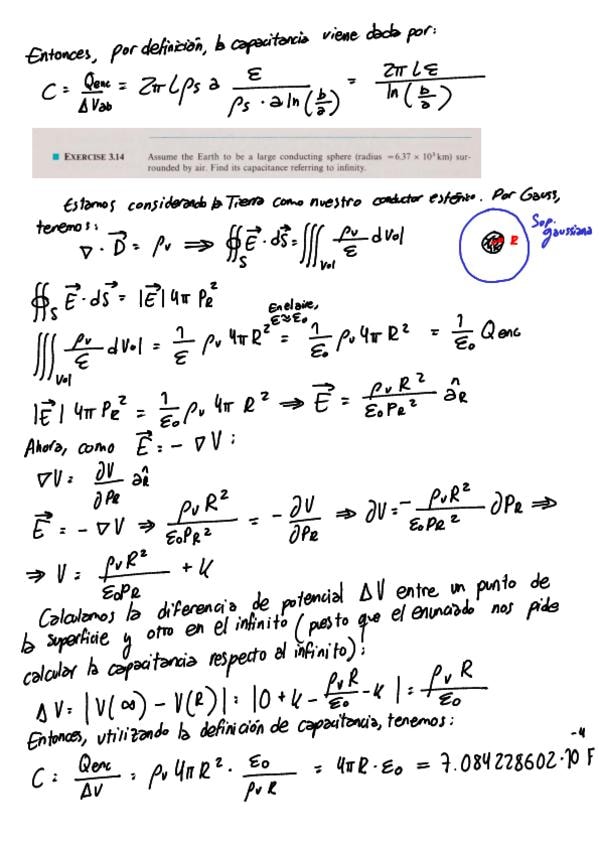 Entonces, por definición, la capacitancia viene dada por:
C = Qenc/ΔVab = 2πLρs a ε/(ρs · a ln(b/a)) = 2πLε/ln(b/a)
■ EXERCISE 3.14 Assume the Earth to be a large conducting sphere (radius =6.37 × 10³ km) sur-
rounded by air. Find its capacitance referring to infinity.
Estamos considerando la Tierra como nuestro conductor esférico. Por Gauss,
tenemos:
∇ · D⃗ = ρv ⟹ ∯S E⃗ · dS⃗ = ∭Vol ρv/ε dVol
Sup.
gaussiana
R
∯S E⃗ · dS⃗ = |E⃗| 4π PR²
En el aire,
ε≈ε₀
∭Vol ρv/ε dVol = 1/ε ρv 4πR² = 1/ε₀ ρv 4πR² = 1/ε₀ Qenc
|E⃗| 4π PR² = 1/ε₀ ρv 4π R² ⟹ E⃗ = ρv R²/(ε₀PR²) âR
Ahora, como E⃗ = - ∇V:
∇V = ∂V/∂PR âR
E⃗ = - ∇V ⟹ ρv R²/(ε₀PR²) = - ∂V/∂PR ⟹ ∂V = - ρvR²/(ε₀PR²) ∂PR ⟹
⟹ V = ρvR²/(ε₀PR) + K
Calculamos la diferencia de potencial ΔV entre un punto de
la superficie y otro en el infinito (puesto que el enunciado nos pide
calcular la capacitancia respecto al infinito):
ΔV = |V(∞) - V(R)| = |0 + K - ρvR/ε₀ - K| = ρv R/ε₀
Entonces, utilizando la definición de capacitancia, tenemos:
C = Qenc/ΔV = ρv 4πR² · ε₀/(ρv R) = 4πR · ε₀ = 7.084228602·10⁻⁴ F